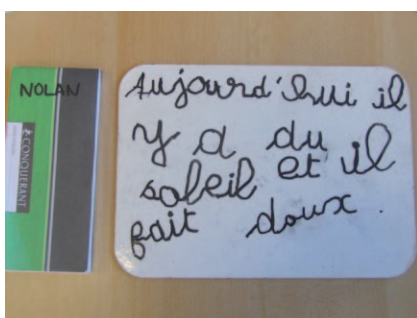 NOLAN
CONQUERANT
Aujourd'hui il
y a du
soleil et il
fait doux.